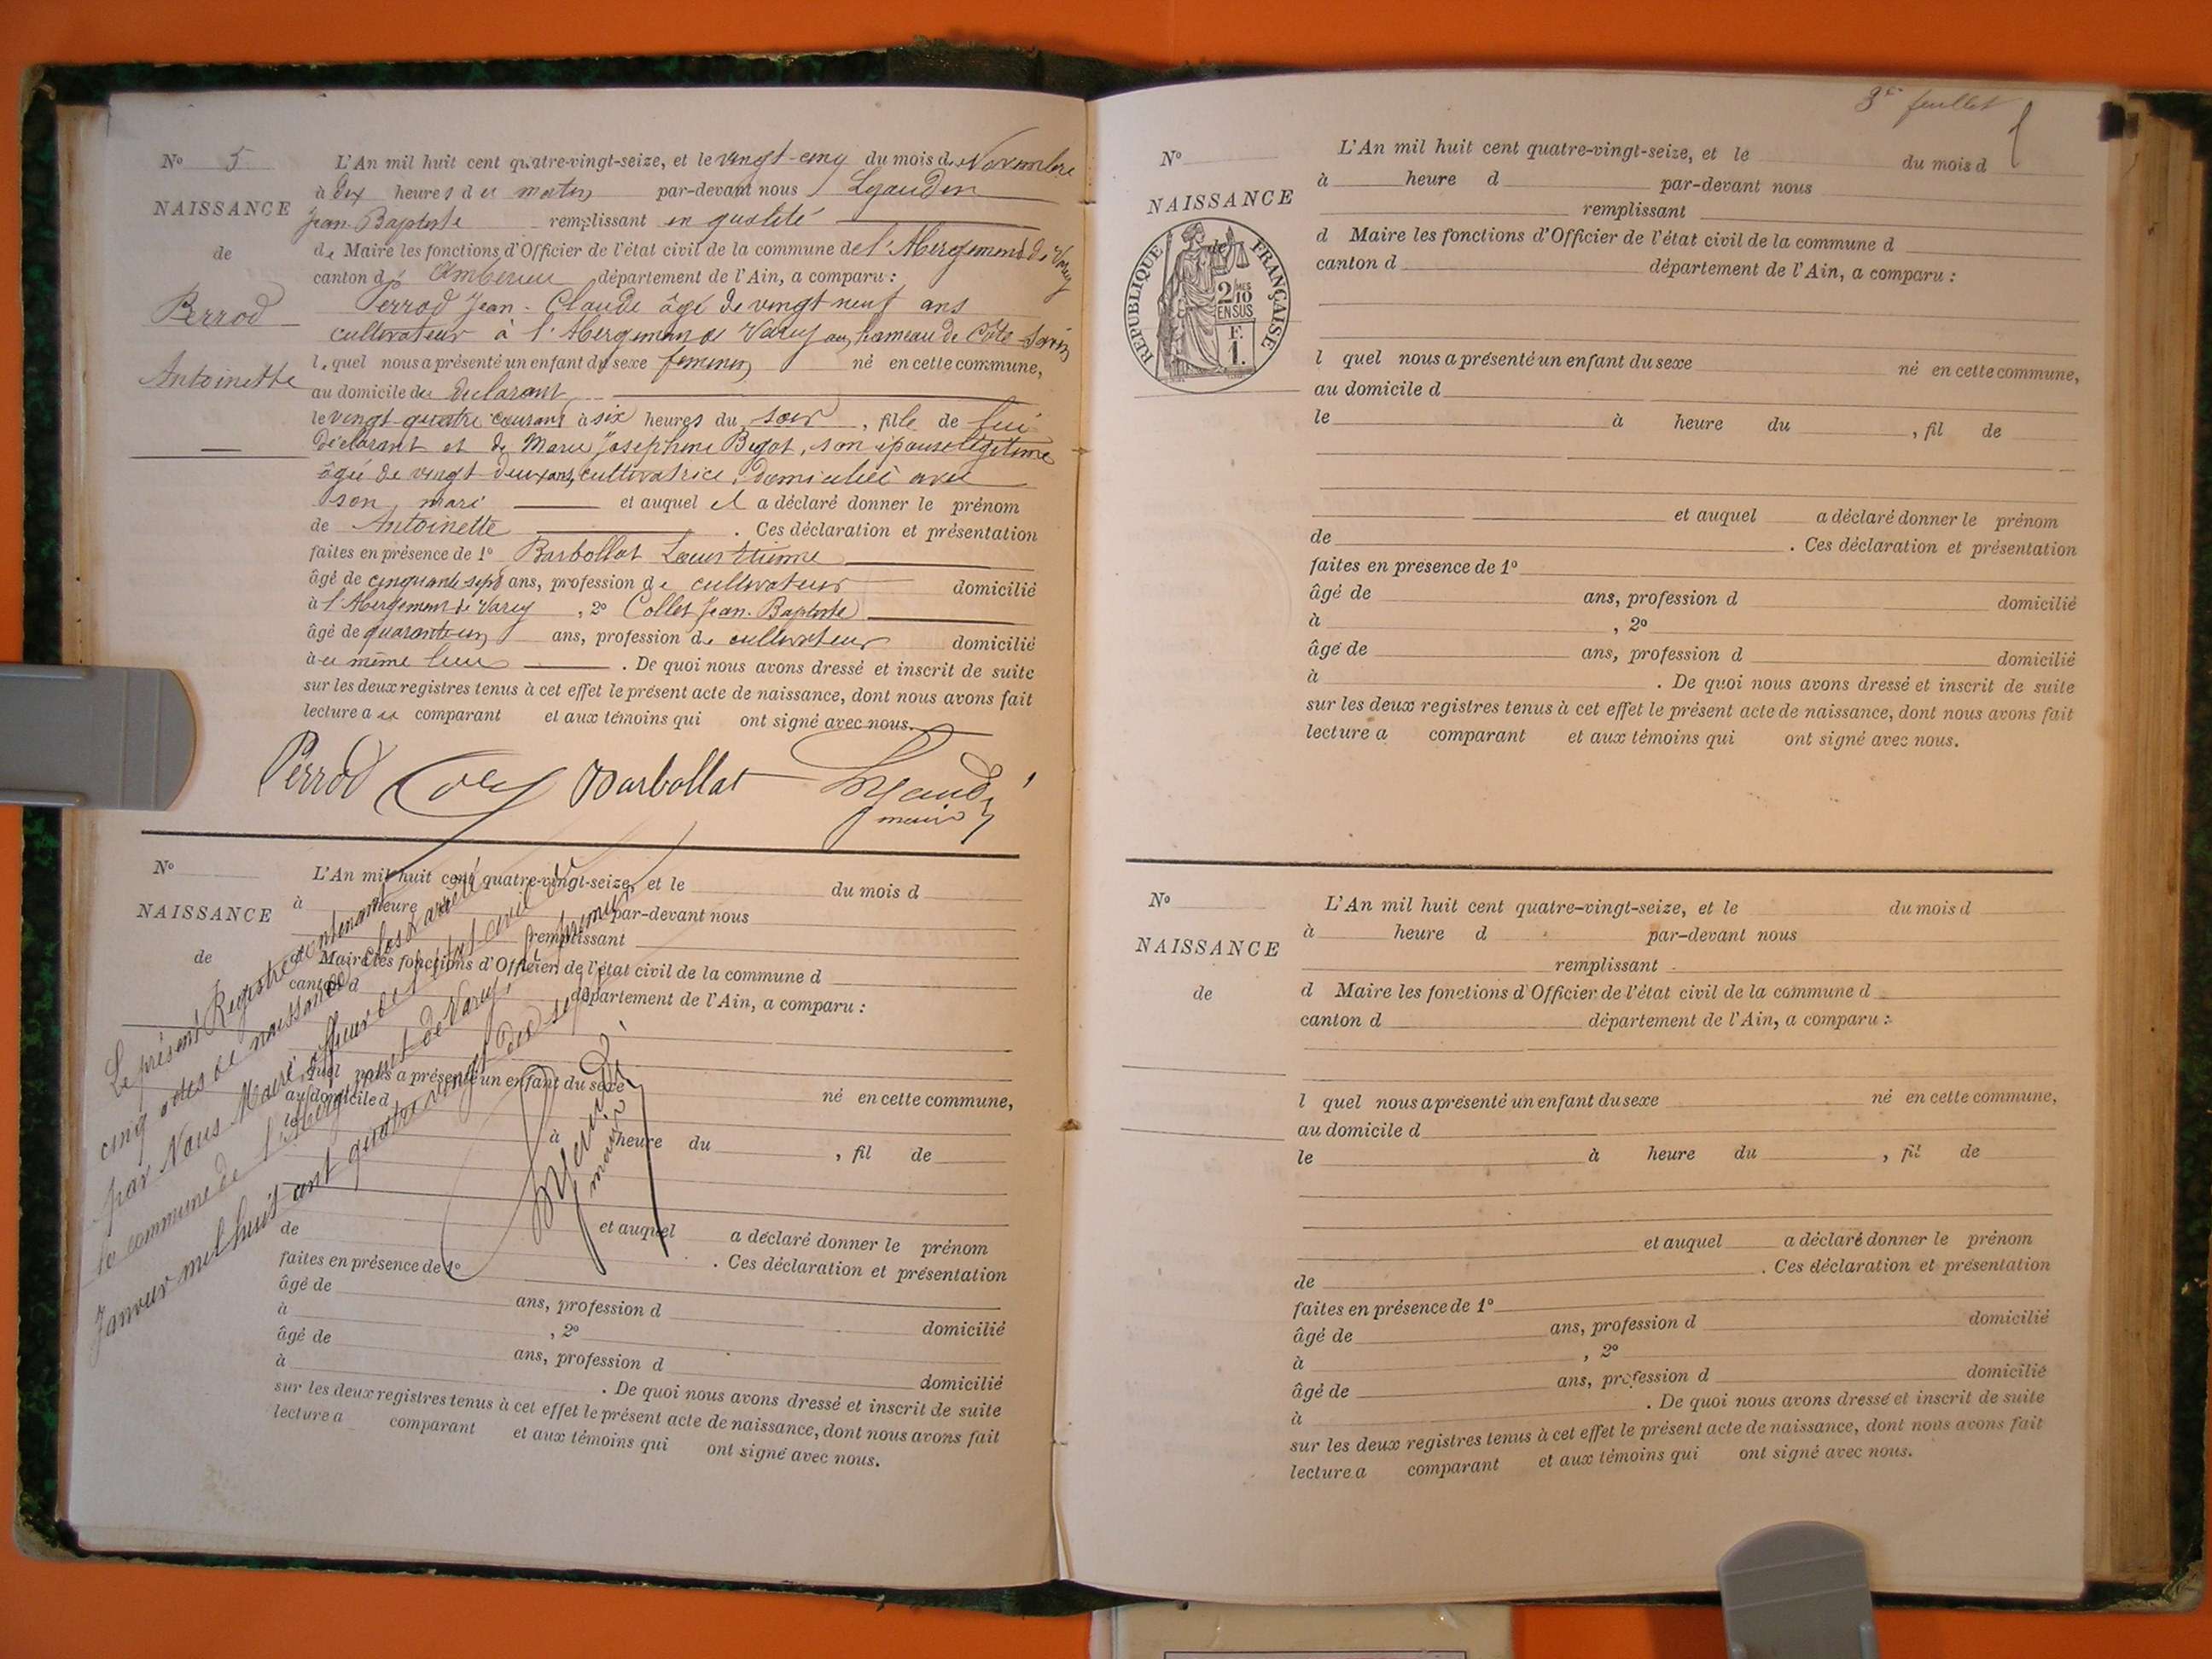 N° 5
NAISSANCE
de
Perrod
Antoinette
L'An mil huit cent quatre-vingt-seize, et le vingt-cinq du mois de Novembre
à dix heures du matin par-devant nous
Jean Baptiste remplissant en qualité
de Maire les fonctions d'Officier de l'état civil de la commune de l'Abergement de Varey
canton d' Ambérieu département de l'Ain, a comparu :
Perrod Jean-Claude âgé de vingt neuf ans
cultivateur à l'Abergement de Varey au hameau de Côte Savin
lequel nous a présenté un enfant du sexe féminin né en cette commune,
au domicile du déclarant
le vingt quatre courant à six heures du soir, fille de lui
déclarant et de Marie Josephine Bigot, son épouse légitime
âgée de vingt deux ans, cultivatrice, domiciliée avec
son mari et auquel il a déclaré donner le prénom
de Antoinette . Ces déclaration et présentation
faites en présence de 1° Barbollat Louis Etienne
âgé de cinquante sept ans, profession de cultivateur domicilié
à l'Abergement de Varey , 2° Collet Jean-Baptiste
âgé de quarante un ans, profession de cultivateur domicilié
au même lieu . De quoi nous avons dressé et inscrit de suite
sur les deux registres tenus à cet effet le présent acte de naissance, dont nous avons fait
lecture au comparant et aux témoins qui ont signé avec nous.
Perrod Barbollat
maire
N°
NAISSANCE
de
L'An mil huit cent quatre-vingt-seize, et le du mois d
à heure par-devant nous
remplissant
Maire les fonctions d'Officier de l'état civil de la commune d
canton d département de l'Ain, a comparu :
quel nous a présenté un enfant du sexe né en cette commune,
au domicile d
le à heure du , fil de
et auquel a déclaré donner le prénom
de . Ces déclaration et présentation
faites en présence de 1°
âgé de ans, profession d domicilié
à , 2°
âgé de ans, profession d domicilié
à . De quoi nous avons dressé et inscrit de suite
sur les deux registres tenus à cet effet le présent acte de naissance, dont nous avons fait
lecture a comparant et aux témoins qui ont signé avec nous.
Le présent Registre contenant
cinq actes de naissances clos & arrêté
par Nous Maire, officier de l'état civil de
la commune de l'Abergement de Varey, le premier
Janvier mil huit cent quatre vingt dix sept
maire
3e feuillet
N°
NAISSANCE
de
RÉPUBLIQUE FRANÇAISE
2/10 MES
EN SUS
F.
1.
L'An mil huit cent quatre-vingt-seize, et le du mois d
à heure d par-devant nous
remplissant
d Maire les fonctions d'Officier de l'état civil de la commune d
canton d département de l'Ain, a comparu :
l quel nous a présenté un enfant du sexe né en cette commune,
au domicile d
le à heure du , fil de
et auquel a déclaré donner le prénom
de . Ces déclaration et présentation
faites en présence de 1°
âgé de ans, profession d domicilié
à , 2°
âgé de ans, profession d domicilié
à . De quoi nous avons dressé et inscrit de suite
sur les deux registres tenus à cet effet le présent acte de naissance, dont nous avons fait
lecture a comparant et aux témoins qui ont signé avec nous.
N°
NAISSANCE
de
L'An mil huit cent quatre-vingt-seize, et le du mois d
à heure d par-devant nous
remplissant
d Maire les fonctions d'Officier de l'état civil de la commune d
canton d département de l'Ain, a comparu :
l quel nous a présenté un enfant du sexe né en cette commune,
au domicile d
le à heure du , fil de
et auquel a déclaré donner le prénom
de . Ces déclaration et présentation
faites en présence de 1°
âgé de ans, profession d domicilié
à , 2°
âgé de ans, profession d domicilié
à . De quoi nous avons dressé et inscrit de suite
sur les deux registres tenus à cet effet le présent acte de naissance, dont nous avons fait
lecture a comparant et aux témoins qui ont signé avec nous.